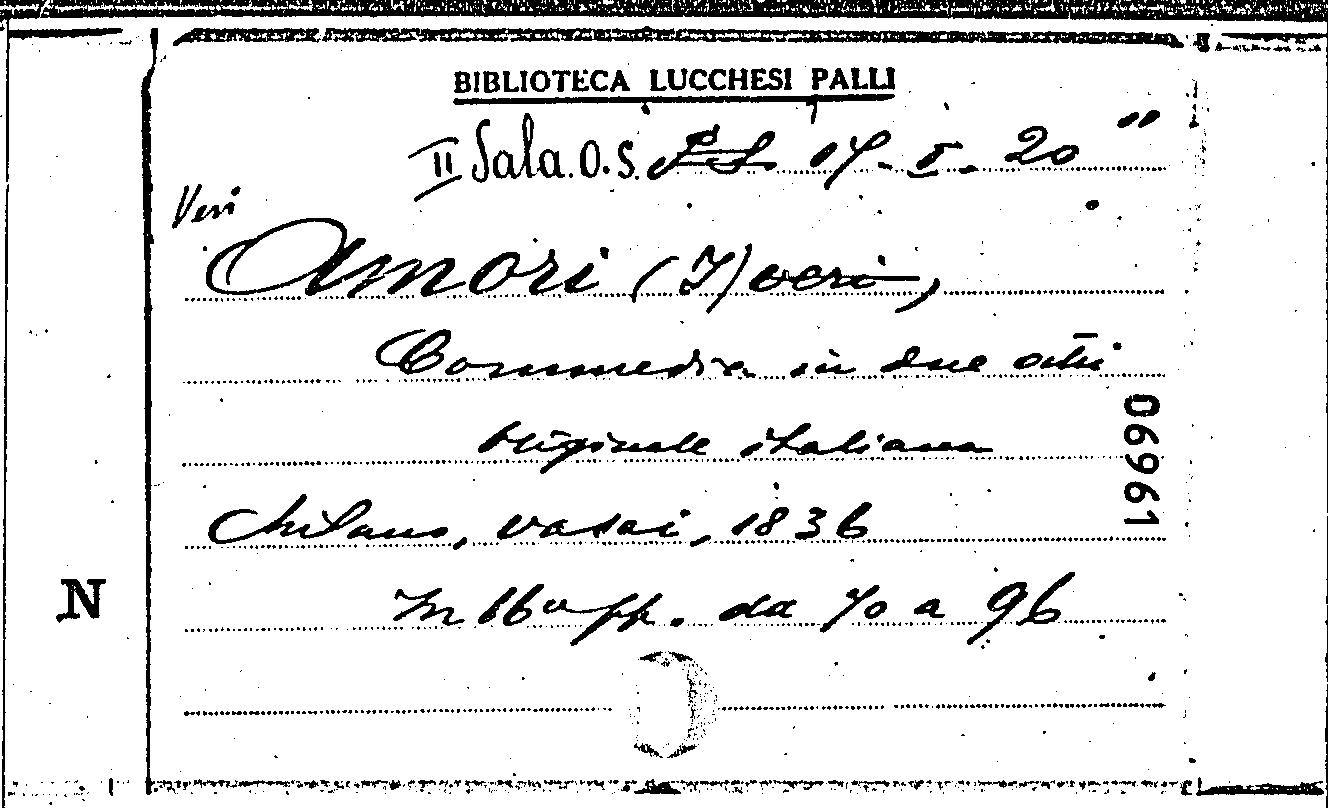 BIBLIOTECA LUCCHESI PALLI
II Sala. O. S. 17. I. 20
Veri
Amori (I) veri,
Commedia in due atti
originale italiana
Milano, Vasai, 1836
In 16° pp. da 70 a 96
06961
N